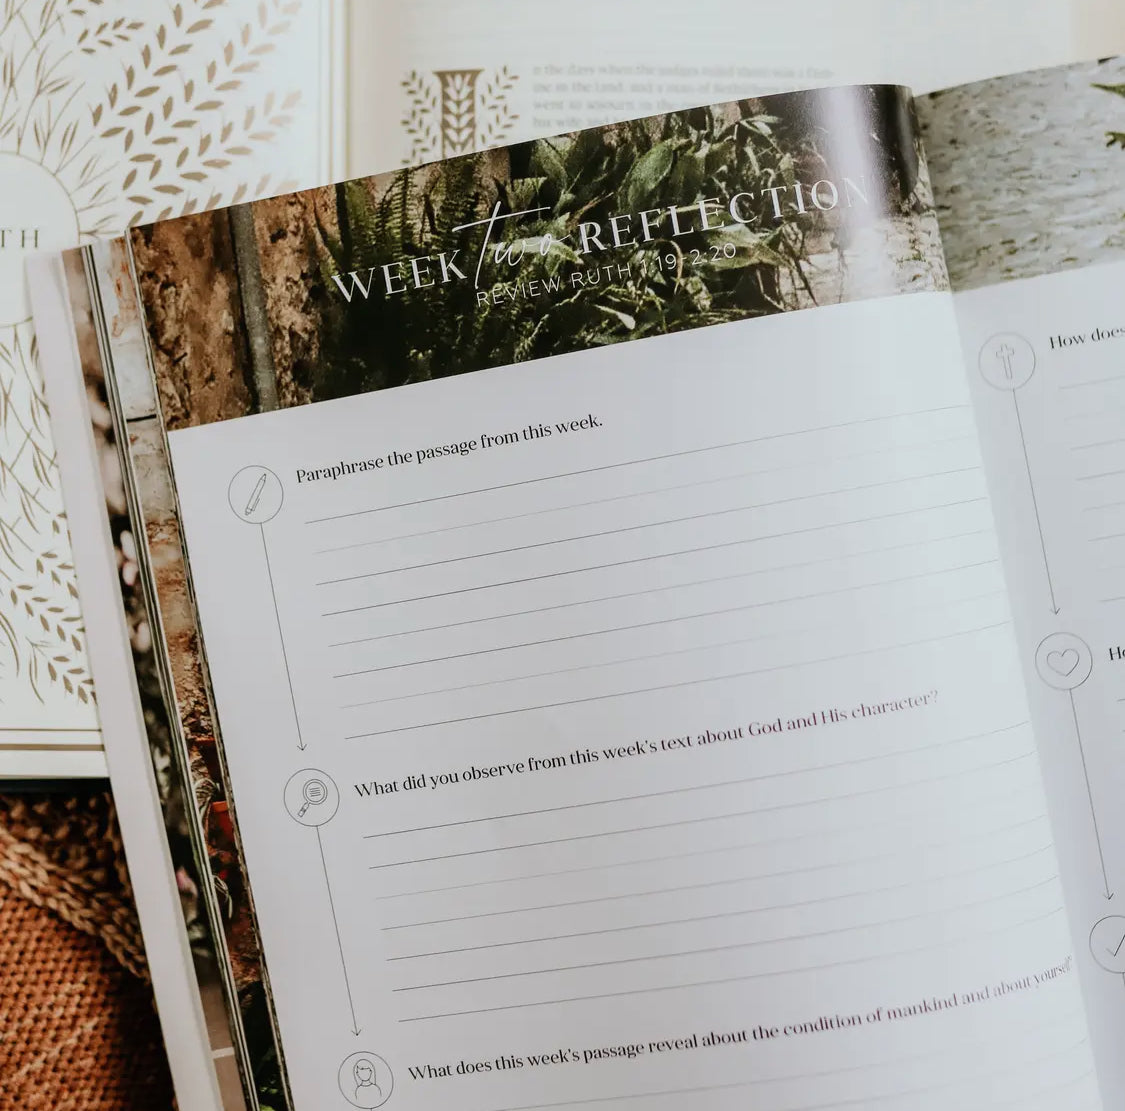 TH
n the days when the judges ruled there was a fam-
ine in the land, and a man of Bethlehem
went to sojourn in the
his wife and
WEEK two REFLECTION
REVIEW RUTH 1:19-2:20
Paraphrase the passage from this week.
What did you observe from this week's text about God and His character?
What does this week's passage reveal about the condition of mankind and about yourself?
How does
Ho